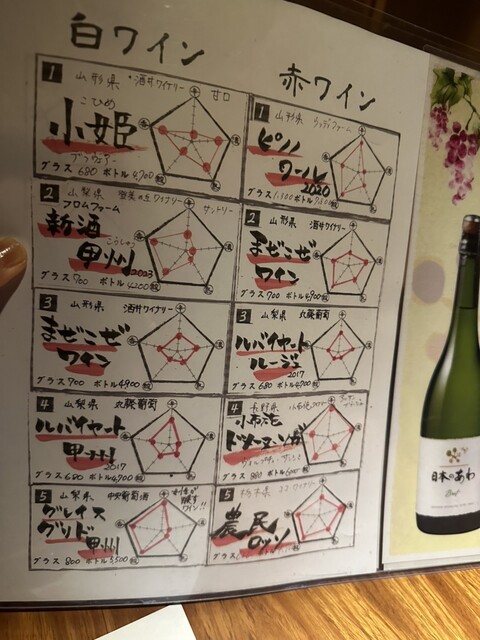 白ワイン
1 山形県 酒井ワイナリー 甘口
こひめ
小姫
グラス 680 ボトル 4,700
2 山梨県 サントリー
フロムファーム
新酒
こうしゅう
甲州
グラス 700 ボトル 4200
3 山形県 酒井ワイナリー
まぜこぜ
ワイン
グラス 700 ボトル 4,900
4 山梨県 丸藤葡萄
ルバイヤート
甲州
2017
グラス 680 ボトル 4,700
5 山梨県 中央葡萄酒
グレイス
グリド
甲州
グラス 800 ボトル 5,500
赤ワイン
1 山形県
ピノノ
ワール
2020
グラス 1,300 ボトル
2 山形県 酒井ワイナリー
まぜこぜ
ワイン
グラス 700 ボトル 4,900
3 山梨県 丸藤葡萄
ルバイヤート
ルージュ
2017
グラス 680 ボトル 4,700
4 長野県
小布施
ドメーヌソガ
グラス 880 ボトル
5 栃木県 ココワイナリー
農民
ロッソ
グラス
日本のあわ
Brut